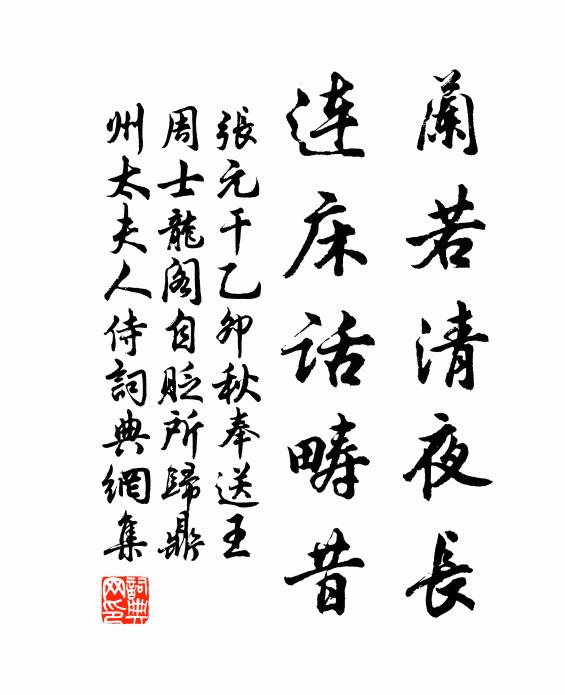 蘭若清夜長
連床話疇昔
張元干乙卯秋奉送王
周士龍閣自貶所歸鼎
州太夫人侍詞典網集
詞典
网印